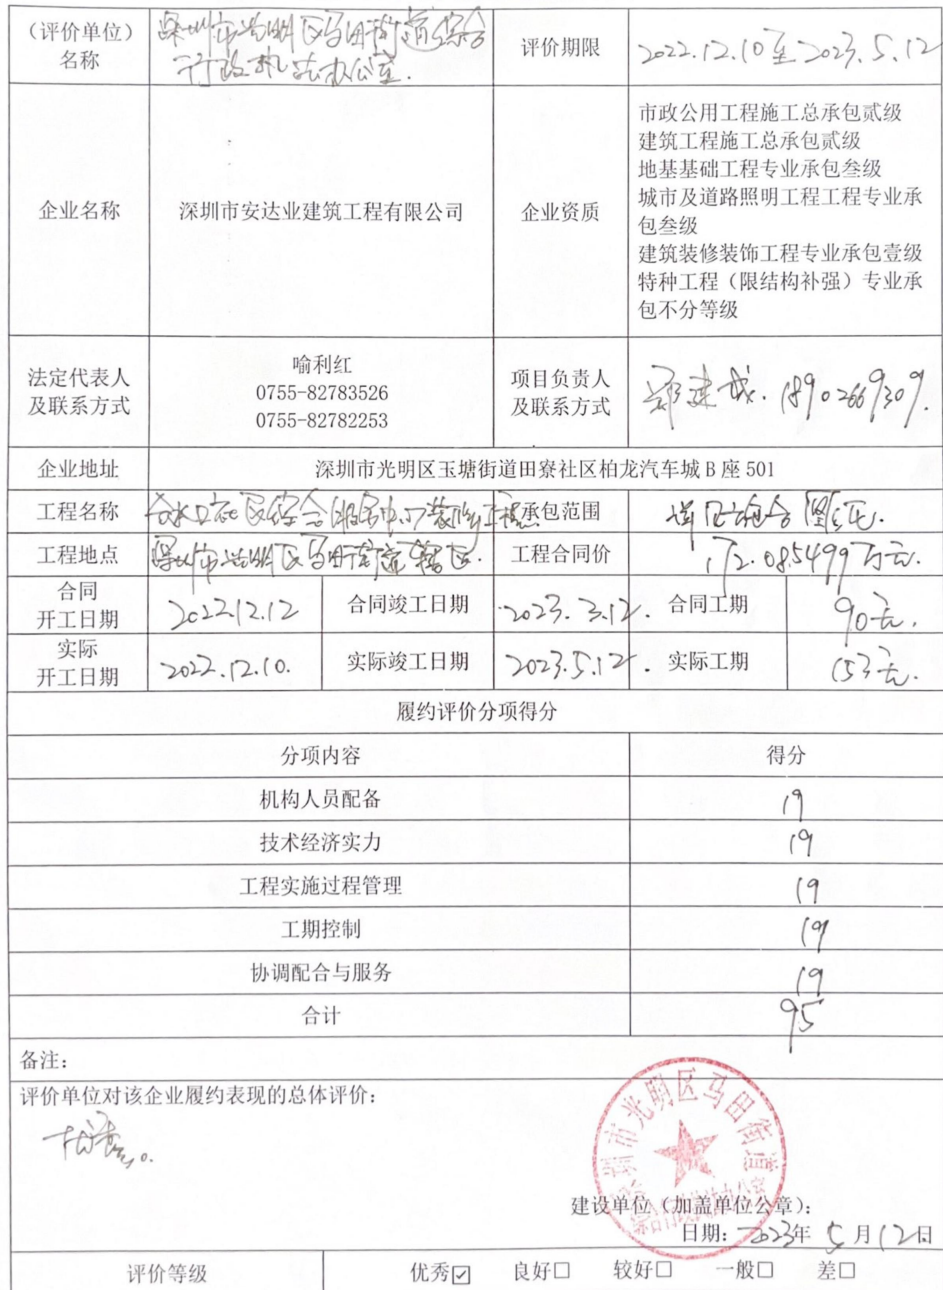 （评价单位）
名称
深圳市光明区马田街道综合
行政执法办公室.
评价期限
2022.12.10至2023.5.12
企业名称
深圳市安达业建筑工程有限公司
企业资质
市政公用工程施工总承包贰级
建筑工程施工总承包贰级
地基基础工程专业承包叁级
城市及道路照明工程工程专业承
包叁级
建筑装修装饰工程专业承包壹级
特种工程（限结构补强）专业承
包不分等级
法定代表人
及联系方式
喻利红
0755-82783526
0755-82782253
项目负责人
及联系方式
郑建城. 18902669309.
企业地址
深圳市光明区玉塘街道田寮社区柏龙汽车城 B 座 501
工程名称
合水口社区综合服务中心装修工程.
承包范围
工程地点
深圳市光明区马田街道辖区.
工程合同价
172.085499万元.
合同
开工日期
2022.12.12
合同竣工日期
2023.3.12.
合同工期
90天.
实际
开工日期
2022.12.10.
实际竣工日期
2023.5.12.
实际工期
153天.
履约评价分项得分
分项内容
得分
机构人员配备
19
技术经济实力
19
工程实施过程管理
19
工期控制
19
协调配合与服务
19
合计
95
备注：
评价单位对该企业履约表现的总体评价：
优秀.
深圳市光明区马田街道
建设单位（加盖单位公章）：
日期： 2023年 5 月12日
评价等级
优秀☑ 良好□ 较好□ 一般□ 差□